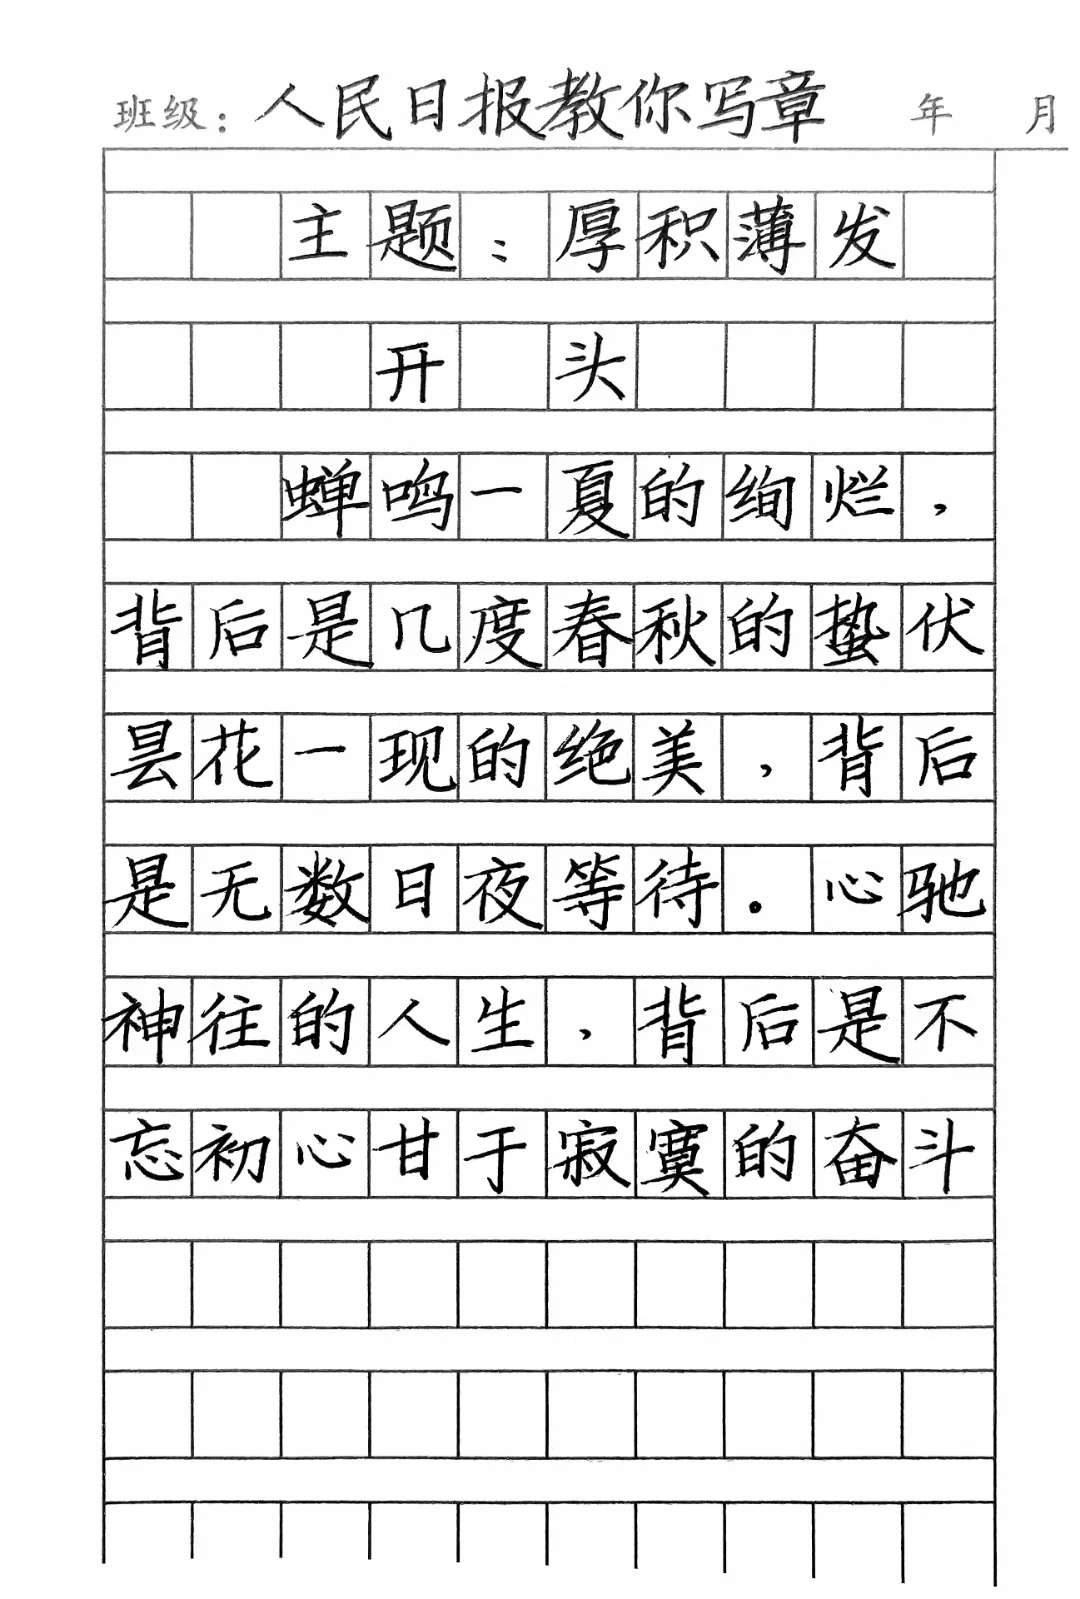 班级：人民日报教你写章 年 月
主题：厚积薄发
开 头
蝉鸣一夏的绚烂，
背后是几度春秋的蛰伏
昙花一现的绝美，背后
是无数日夜等待．心驰
神往的人生，背后是不
忘初心甘于寂寞的奋斗